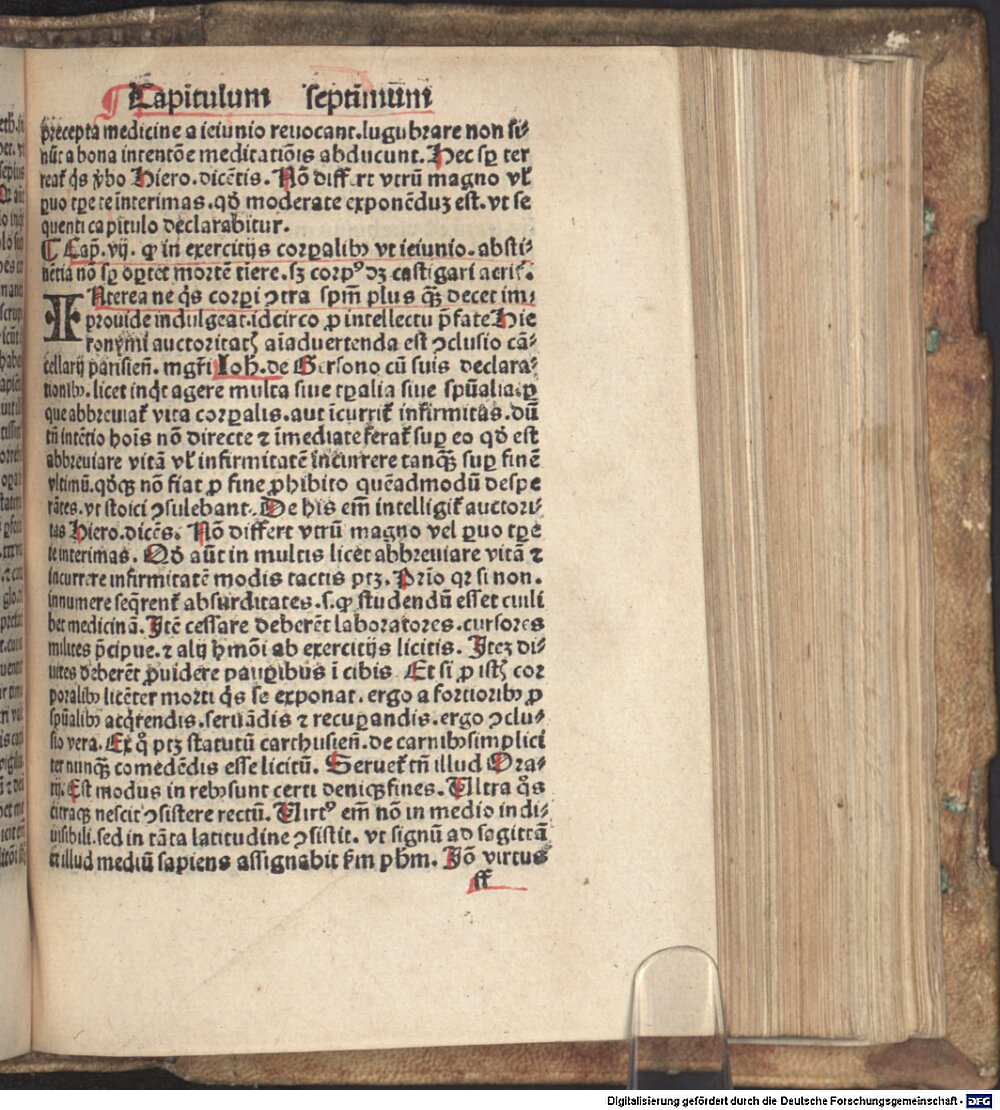 Capitulum septimum
precepta medicine a ieiunio reuocant.lugubrare non si⸗
nūt a bona intentōe meditatiōis abducunt.Hec sꝑ ter
reat᷒ q̇s ꝟbo Hiero.dicētis. Nō differt vtrū magno vł
ꝑuo tꝑe te īnterimas.qđ moderate exponēduȝ est.vt se
quenti capitulo declarabitur.
¶ Cap̄.vij. ꝙ in exercitijs corꝑalibꝰ vt ieiunio.absti⸗
nētia nō sꝑ oꝑtet mortē tiere.sȝ corpꝰ dȝ castigari
INterea ne q̇s corꝑi ↄtra spm̄ plus qȝ̄ decet im⸗
prouide indulgeat.idcirco ꝓ intellectu p̄fate Hie
ronymi auctoritatꝭ aīaduertenda est ↄclusio cā⸗
cellarij parisieñ. mgr̄i Joħ.de Gersono cū suis declara⸗
tionibꝰ.licet inqͥt agere multa siue tꝑalia siue spūalia.ꝑ
que abbreuiat᷒ vita corꝑalis.aut īcurrit᷒ infirmitas.dū
tñ intētio hoīs nō directe ⁊ īmediate ferat᷒ suꝑ eo qđ est
abbreuiare vitā vł infirmitatē incurrere tanqȝ̄ suꝑ finē
vltimū.qđqȝ nō fiat ꝓ fine ꝓhibito quēadmodū despe
rātes.vt stoici ↄsulebant. De his em̄ intelligit᷒ auctori⸗
tas Hiero.dicēs. Nō differt vtrū magno vel ꝑuo tꝑe
te interimas. Qđ aūt in multis licet abbreuiare vitā ⁊
incurrere infirmitatē modis tactis ptȝ. Prīo qꝛ si non.
innumere seq̄rent᷒ absurditates.s.ꝙ studendū esset cuili
bet medicinā. Jtē cessare deberēt laboratores.cursores
milites p̄cipue.⁊ alij hmōi ab exercitijs licitis. Jteȝ di⸗
uites deberēt ꝓuidere pauꝑibus ī cibis. Et si ꝓ istꝭ cor
poralibꝰ licēter morti q̇s se exponat.ergo a fortioribꝰ ꝓ
spūalibꝰ acq̇rendis.seruādis ⁊ recuꝑandis.ergo ↄclu⸗
sio vera. Ex q̊ ptȝ statutū carthusieñ.de carnibꝰ simplici
ter nunqȝ̄ comedēdis esse licitū. Seruet᷒ tñ illud Ora⸗
tij. Est modus in rebꝰ sunt certi deniqȝ fines. Vltra q̊s
citraqȝ nescit ↄsistere rectū. Virtꝰ em̄ nō in medio indi⸗
uisibili.sed in tāta latitudine ↄsistit. vt signū ad sagittā
et illud mediū sapiens assignabit ẜm pħm. Jō virtus
ff
Digitalisierung gefördert durch die Deutsche Forschungsgemeinschaft - DFG